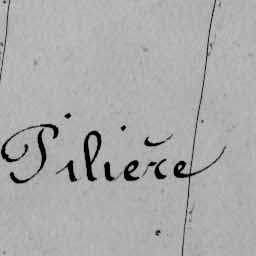 Pilière